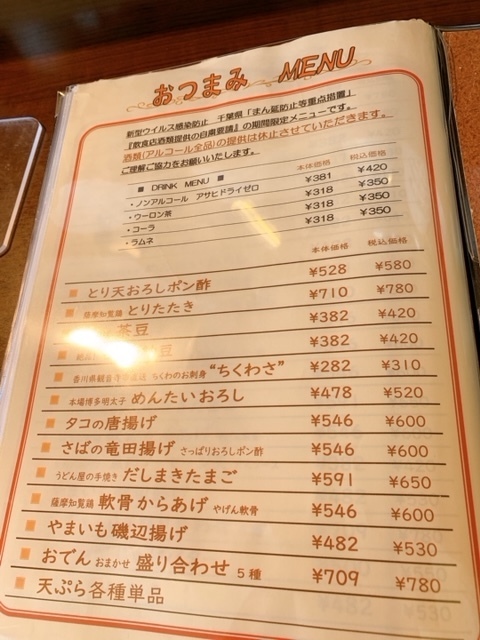 おつまみ MENU
新型ウイルス感染防止 千葉県「まん延防止等重点措置」
『飲食店酒類提供の自粛要請』の期間限定メニューです。
酒類(アルコール全品)の提供は休止させていただきます。
ご理解ご協力をお願いいたします。
■ DRINK MENU ■ 本体価格 税込価格
・ノンアルコール アサヒドライゼロ ¥381 ¥420
・ウーロン茶 ¥318 ¥350
・コーラ ¥318 ¥350
・ラムネ ¥318 ¥350
本体価格 税込価格
■ とり天おろしポン酢 ¥528 ¥580
■ 薩摩知覧鶏 とりたたき ¥710 ¥780
茶豆 ¥382 ¥420
豆 ¥382 ¥420
■ 香川県観音寺 ちくわのお刺身 “ちくわさ” ¥282 ¥310
■ 本場博多明太子 めんたいおろし ¥478 ¥520
■ タコの唐揚げ ¥546 ¥600
■ さばの竜田揚げ さっぱりおろしポン酢 ¥546 ¥600
■ うどん屋の手焼き だしまきたまご ¥591 ¥650
■ 薩摩知覧鶏 軟骨からあげ やげん軟骨 ¥546 ¥600
■ やまいも磯辺揚げ ¥482 ¥530
■ おでん おまかせ 盛り合わせ 5種 ¥709 ¥780
■ 天ぷら各種単品